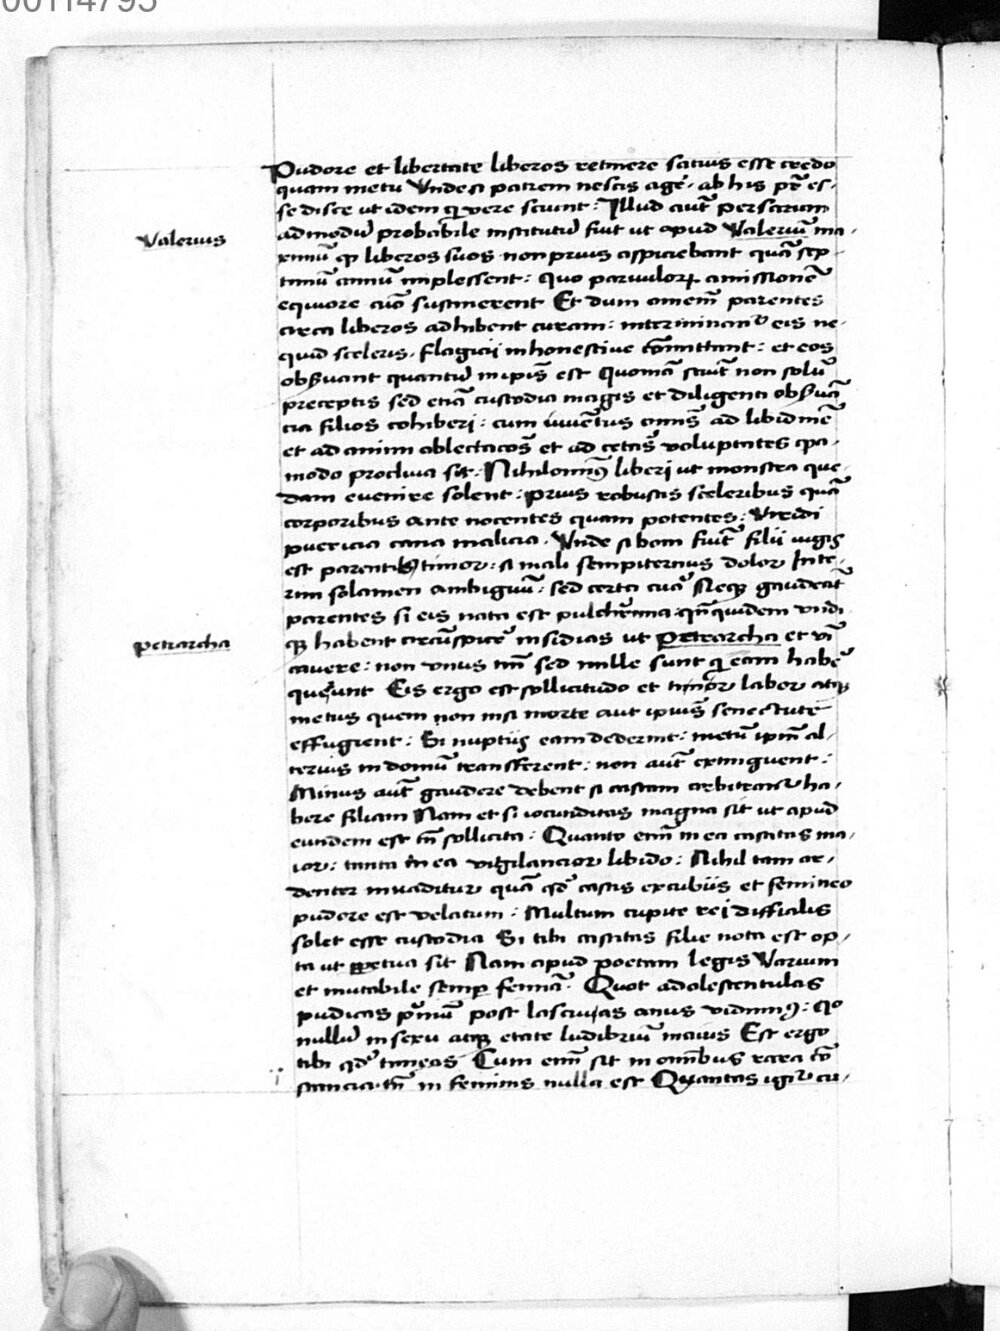 00114795
Pudore et libertate liberos retinere satius esse credo
quam metu Vnde si patrem nescis agē, ab his pr̄ es-
se disce ut idem qͥ vere sciunt: Illud aut̄ persarum
admodū probabile institutū fuit ut apud Valeriū ma-
Valerius
ximū qꝫ liberos suos non prius aspiciebant quā sep-
timū annū implessent: quo parvulorꝝ amissionē
equiore aīo sustinerent Et dum omnem̄ parentes
circa liberos adhibent curam: interminant᷑ eis ne-
quid sceleris, flagicii inhonestive cōmittant: et eos
obẜvant quantū in ipis̄ est Quoniā sciūt non solū
preceptis sed etiā custodia magis et diligenti obẜvā
cia filios cohiberi: cum iuvētus omīs ad libidinē
et ad animi oblectacōes̄ et ad cetās voluptates
modo procliva sit: Nihilominꝰ liberi ut monstra que-
dam evenire solent: prius robustis sceleribus quā
corporibus ante nocentes quam potentes: Viridi
puericia cana malicia. Vnde si boni fiūt filii iugis
est parentibꝰ timor: si mali sempiternus dolor Inte-
rim solamen ambiguū: sed certa cura Neqꝫ gaudeāt
parentes si eis nata est pulcherrima qn̄quidem vndi-
qꝫ habent circūspicere insidias ut Petrarcha et vī
Petrarcha
cavere: non vnus tn̄ sed mille sunt qͥ eam habē
querunt Eis ergo est sollicitudo et timor labor atqꝫ
metus quem non nisi morte aut ipius̄ senectute
effugient: Si nuptiis eam dederint: metū ipm̄ al-
terius in domū transferent: non aut̄ extinguent:
Minus aut̄ gaudere debent si castam arbitrant᷑ ha-
bere filiam Nam et si iocunditas magna sit ut apud
eundem est tn̄ sollicita: Quanto enī in ea castitas ma-
ior: tanta in ea vigilancior libido: Nihil tam ar-
denter invaditur quā qd̄ castis excubiis et femineo
pudore est velatum: Multum cupite rei difficilis
solet esse custodia Si tibi castitas filie nota est op-
ta ut ꝑpetua sit Nam apud poetam legis Varium
et mutabile semꝑ femīa. Quot adolescentulas
pudicas pͥmū post lascivias anus vidimꝰ: Quo
nullū in sexu atqꝫ etate ludibriū maius Est ergo
tibi qd̄ timeas Cum enī sit in omībus rara cō
stancia: tn̄ in feminis nulla est Quantas igit᷑ cu-